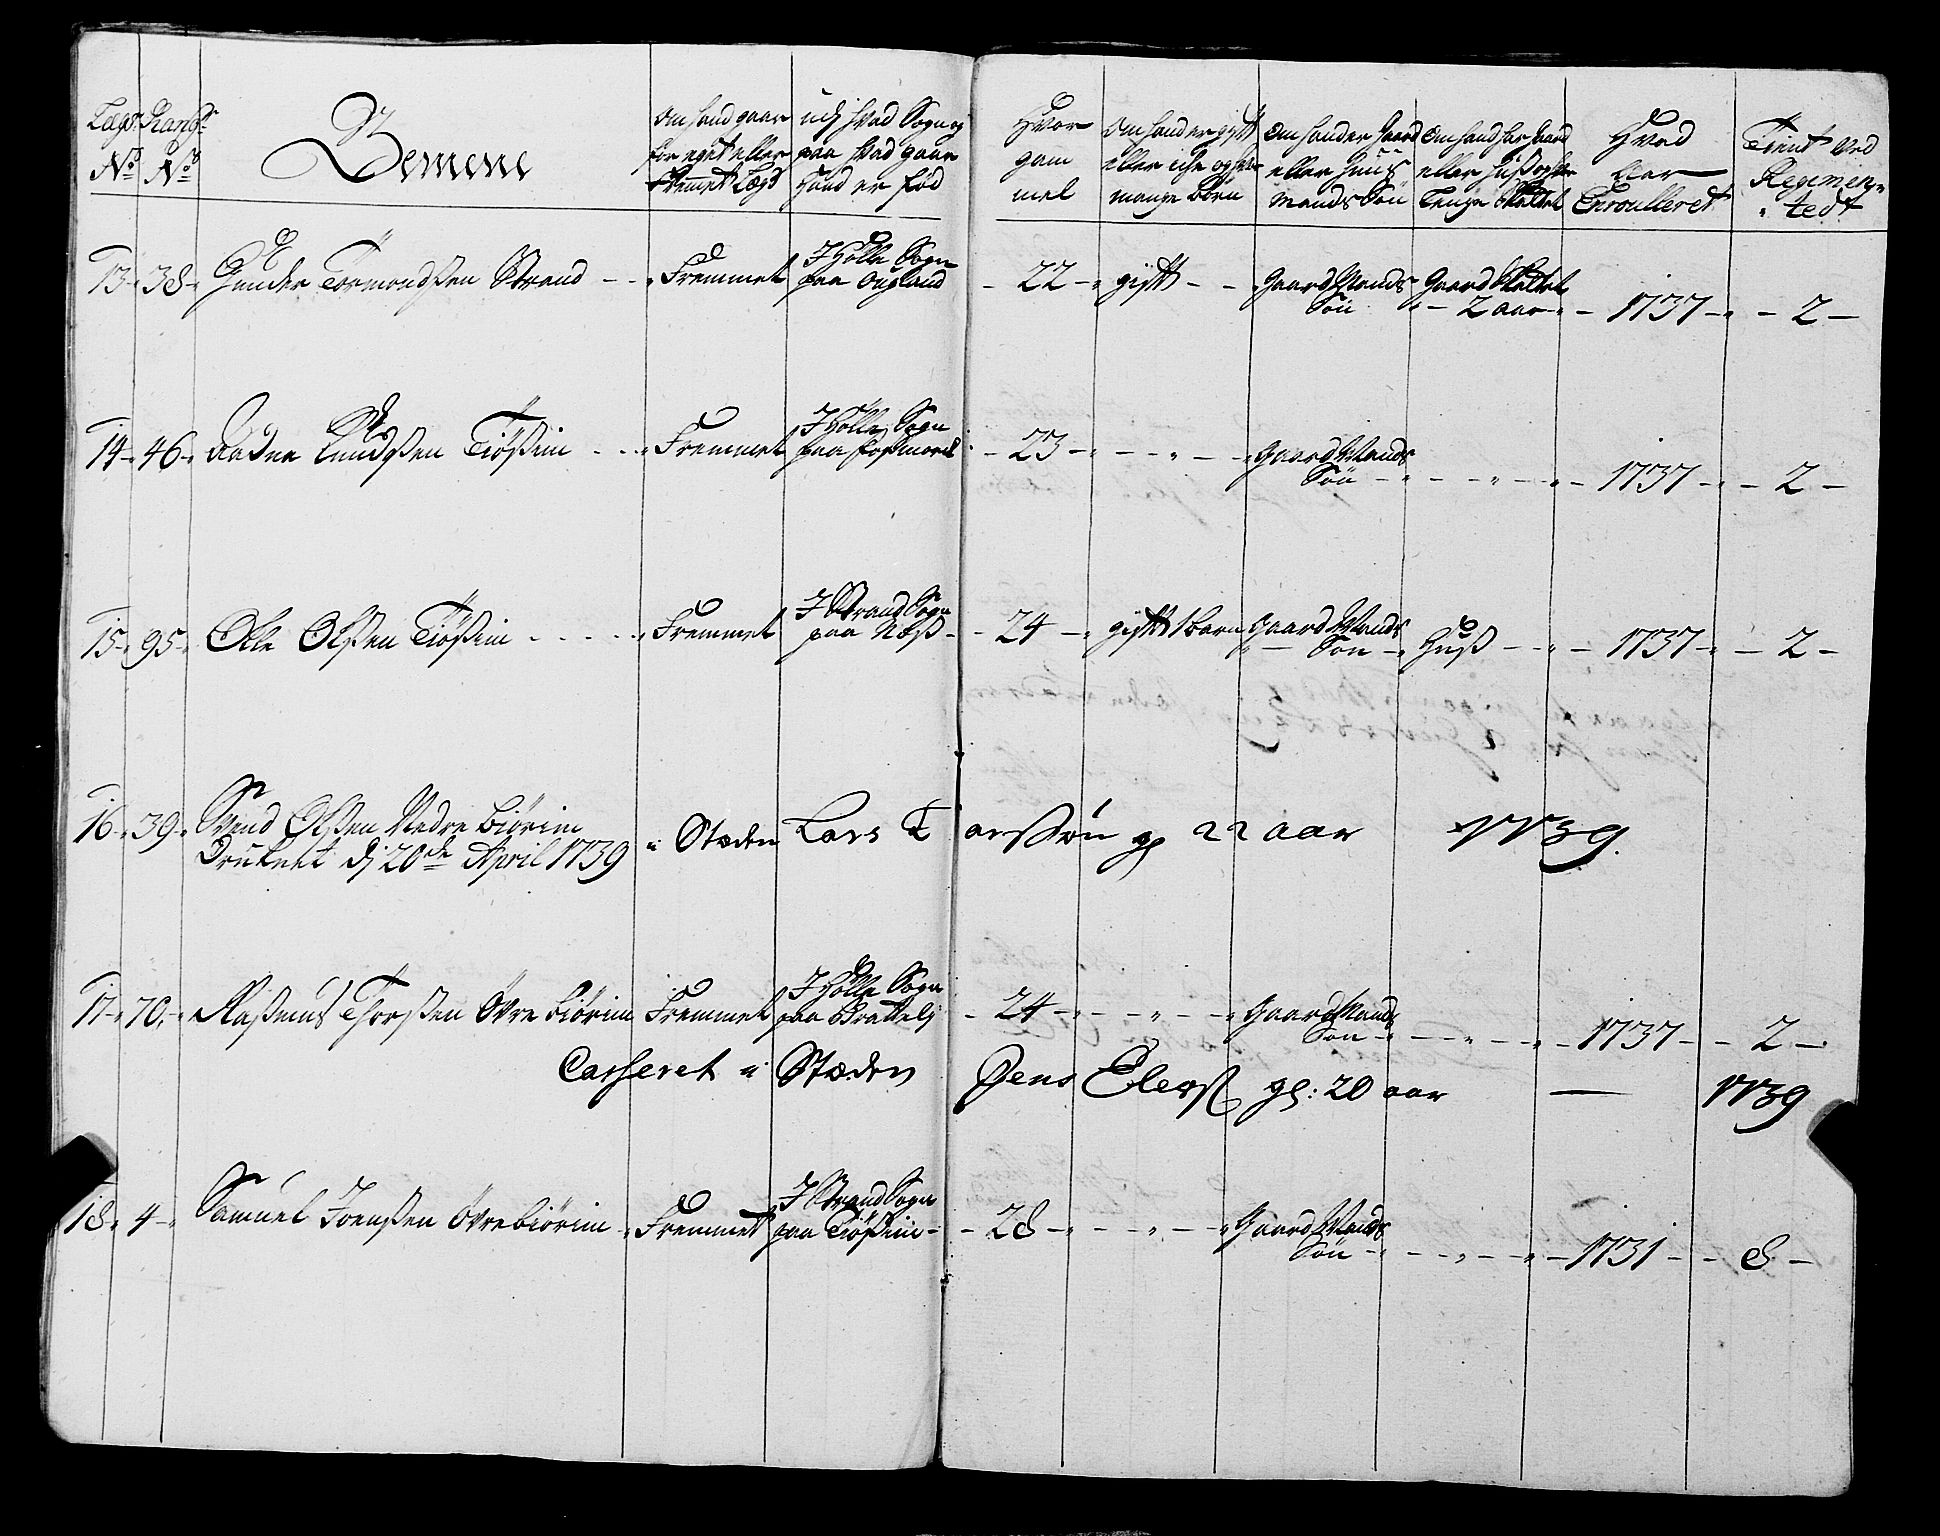 Lægs No
Rang No
Nemene
Om hand gaar
for eget eller
Fremmet Lægd
udj hvad Sogn og
paa hvad gaar
Hand er fød
Hvor
gam
mel
Om hand er gift
eller iche og hvor
mange Børn
Om hand er Gaard
eller Huus
Mands Søn
Om hand har Gaard
eller Huß og hvor
Lenge
Hvad
Aar
Enroulleret
Tient ved
Regimen-
tedt
13 - 38 - Gunder Tormondßen Strand - - Fremmet
J Holle Sogn
paa Ougland
- 22 - gift - - Gaard Mands
Søn
Gaard
- 2 aar - - 1737 - - 2 -
14 - 46 - Aadne Knudßen Tiößeim - - - Fremmet
J Holle Sogn
paa
- 23 - - - Gaard Mands
Søn - - - - 1737 - - 2 -
15 - 95 - Olle Olßen Tiößeim - - - - Fremmet
J Strand Sogn
paa Næß -
- 24 - gift 1 Barn Gaard Mands
Søn - Huß - - - 1737 - - 2 -
16 - 39 - Svend Olßen Nedre Biörim
Druknet dj 20de April 1739
i Steden Lars Larssøn gl 22 aar 1739.
17 - 70 - Raßmus Thorßen Øvre Biörim Fremmet
J Holle Sogn
paa Brattelj
- 24 - - - Gaard Mands
Søn - - - 1737 - - 2 -
Casseret i Steden Jens Elerß gl: 20 aar — 1739
18 - 4 - Samuel Joenßen Øvre biörim - Fremmet
J Strand Sogn
paa Tiößeim -
- 28 - - - Gaard Mands
Søn - - - - 1731 - - 8 -